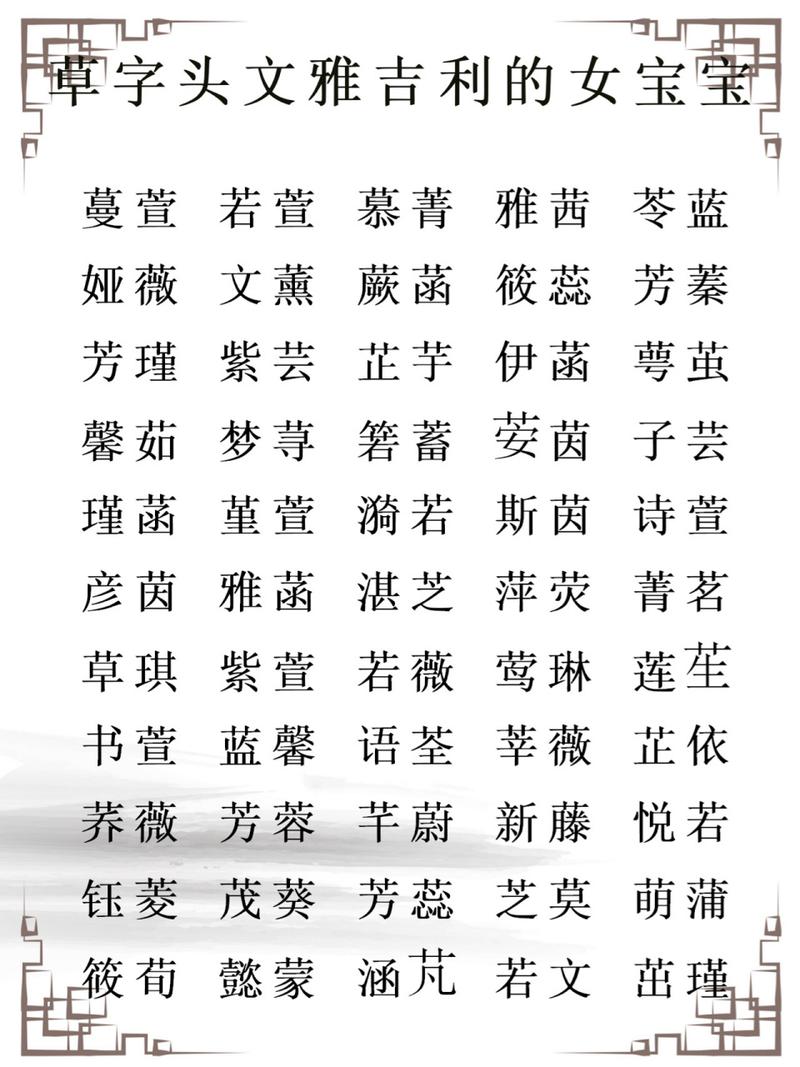 草字头文雅吉利的女宝宝
蔓萱 若萱 慕菁 雅茜 苓蓝
娅薇 文薰 蕨菡 筱蕊 芳蓁
芳瑾 紫芸 芷芋 伊菡 萼茧
馨茹 梦荨 箬蓄 荌茵 子芸
瑾菡 堇萱 漪若 斯茵 诗萱
彦茵 雅菡 湛芝 萍荧 菁茗
草琪 紫萱 若薇 莺琳 莲苼
书萱 蓝馨 语荃 莘薇 芷依
荞薇 芳蓉 芊蔚 新藤 悦若
钰菱 茂葵 芳蕊 芝莫 萌蒲
筱荀 懿蒙 涵芃 若文 茁瑾